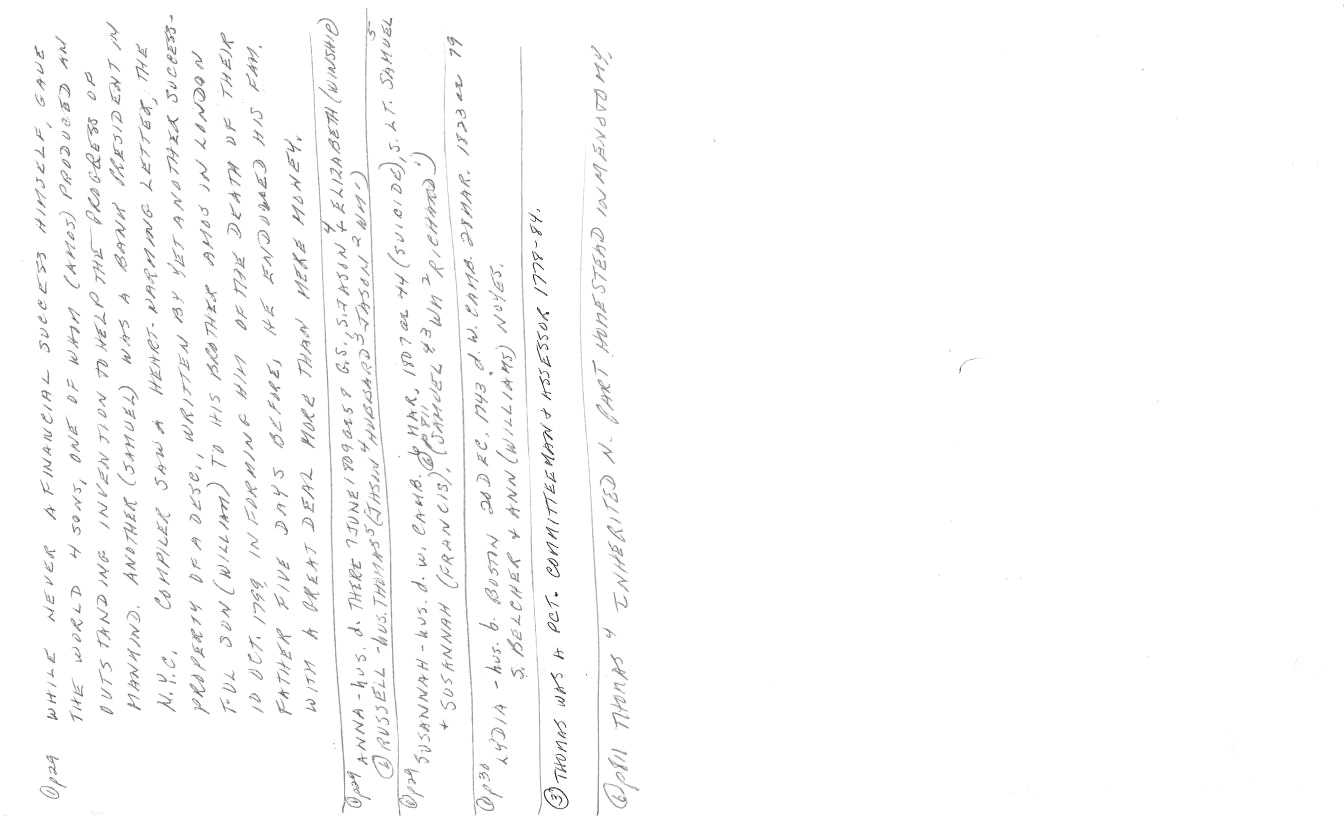 @p29 WHILE NEVER A FINANCIAL SUCCESS HIMSELF, GAVE
THE WORLD 4 SONS, ONE OF WHM (AMOS) PRODUCED AN
OUTSTANDING INVENTION TO HELP THE PROGRESS OF
MANKIND. ANOTHER (SAMUEL) WAS A BANK PRESIDENT IN
N.Y.C. COMPILER SAW A HEART-WARMING LETTER, THE
PROPERTY OF A DESC., WRITTEN BY YET ANOTHER SUCCESS-
FUL SON (WILLIAM) TO HIS BROTHER AMOS IN LONDON
10 OCT. 1799, INFORMING HIM OF THE DEATH OF THEIR
FATHER FIVE DAYS BEFORE, HE ENDOWED HIS FAM.
WITH A GREAT DEAL MORE THAN MERE MONEY.
@p29 ANNA - hus. d. THERE 7 JUNE 1809 G.S., S. JASON 4 + ELIZABETH (WINSHIP)
RUSSELL - hus. THOMAS 5 (JASON 4 HUBBARD 3 JASON 2 WM.)
@p29 SUSANNAH - hus. d. W. CAMB. MAR. 1807 ae 44 (SUICIDE), S. LT. SAMUEL 5
+ SUSANNAH (FRANCIS), @p811 (SAMUEL 4 3 WM 2 RICHARD 1)
@p30 LYDIA - hus. b. BOSTON 20 DEC. 1743. d. W. CAMB. 28 MAR. 1823 ae 79
S. BELCHER + ANN (WILLIAMS) NOYES.
③ THOMAS WAS A PCT. COMMITTEEMAN & ASSESSOR 1778-84.
@p811 THOMAS 4 INHERITED N. PART HOMESTEAD IN MENOTOMY,